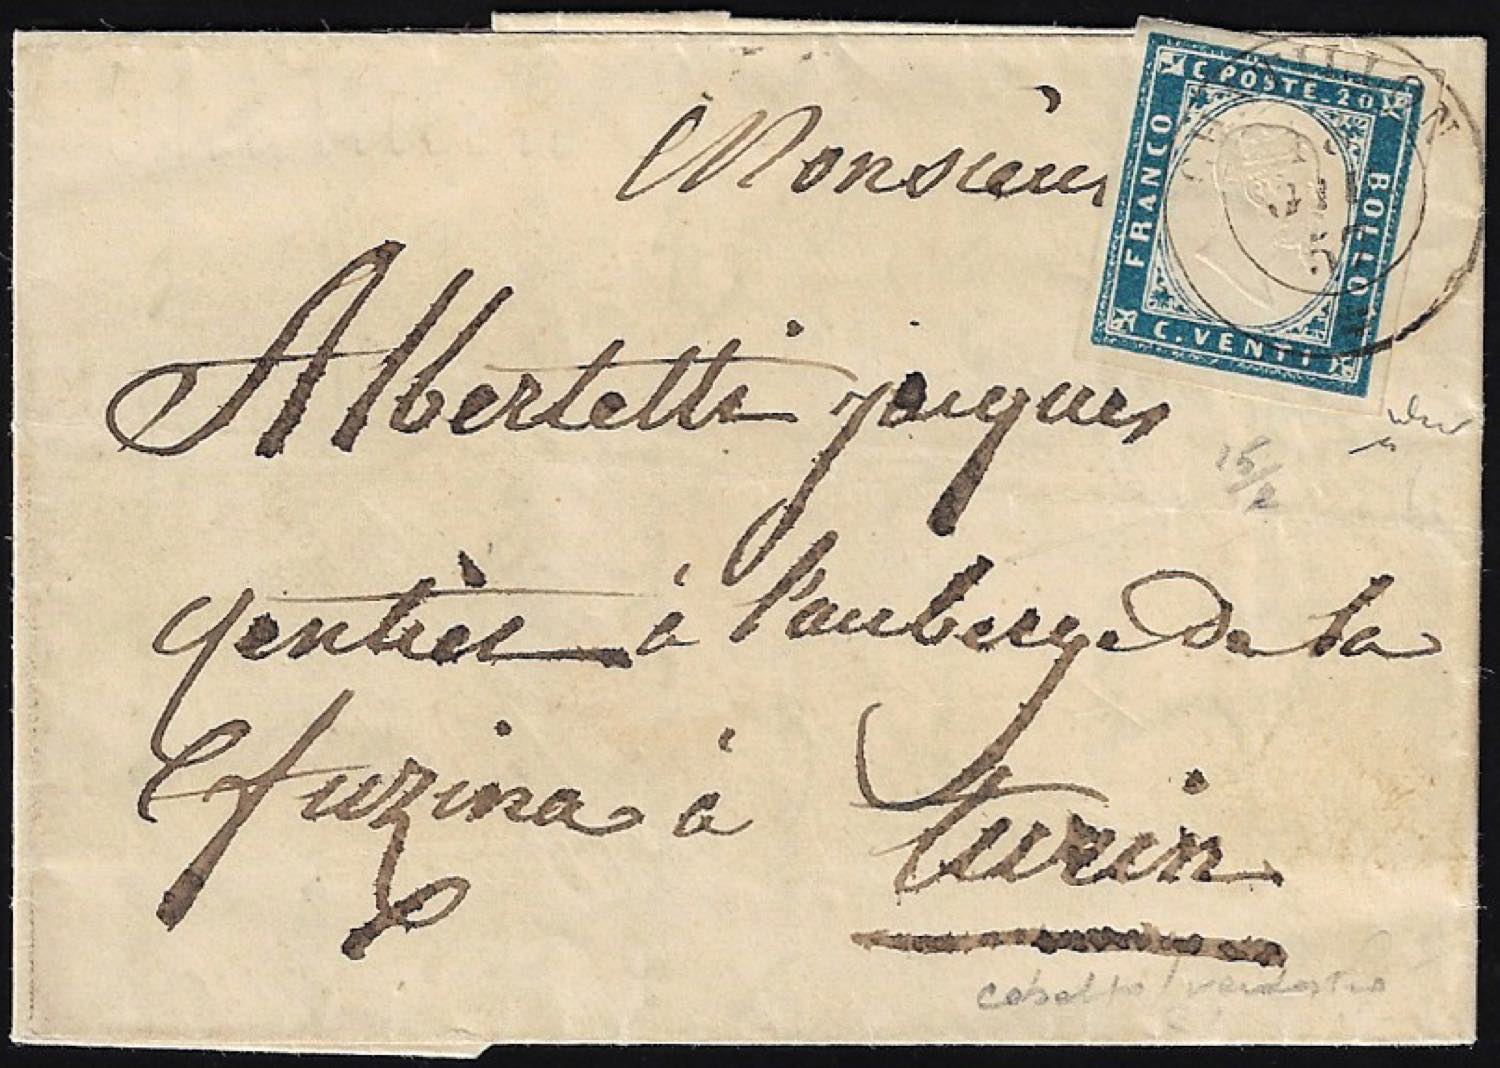 C. POSTE. 20
FRANCO
BOLLO
C. VENTI
Monsieur
Albertetti jaques
rentier à l'auberge de la
fuzina à
turin
15/2